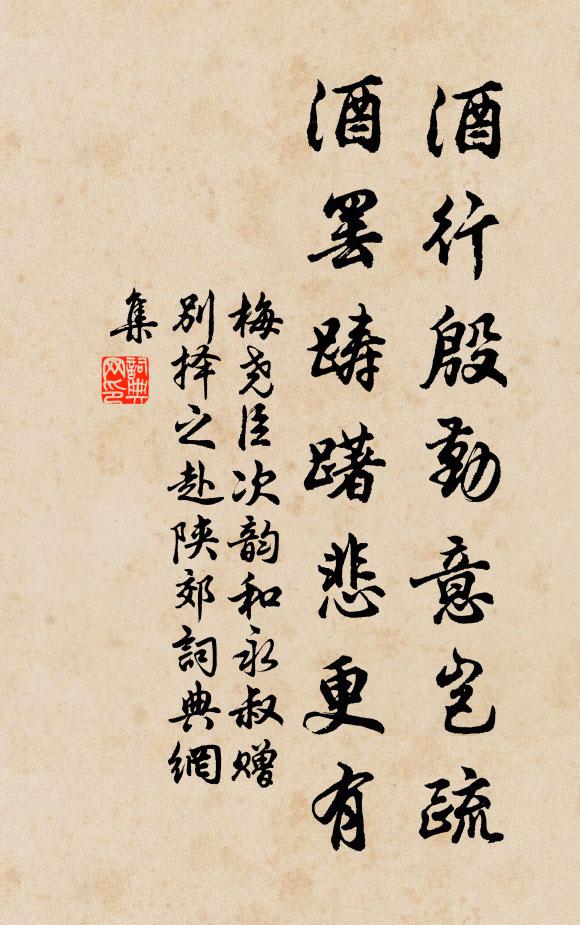 酒行殷勤意岂疏
酒罢踌躇悲更有
梅尧臣次韵和永叔赠
别择之赴陕郊詞典網
集
詞典网印